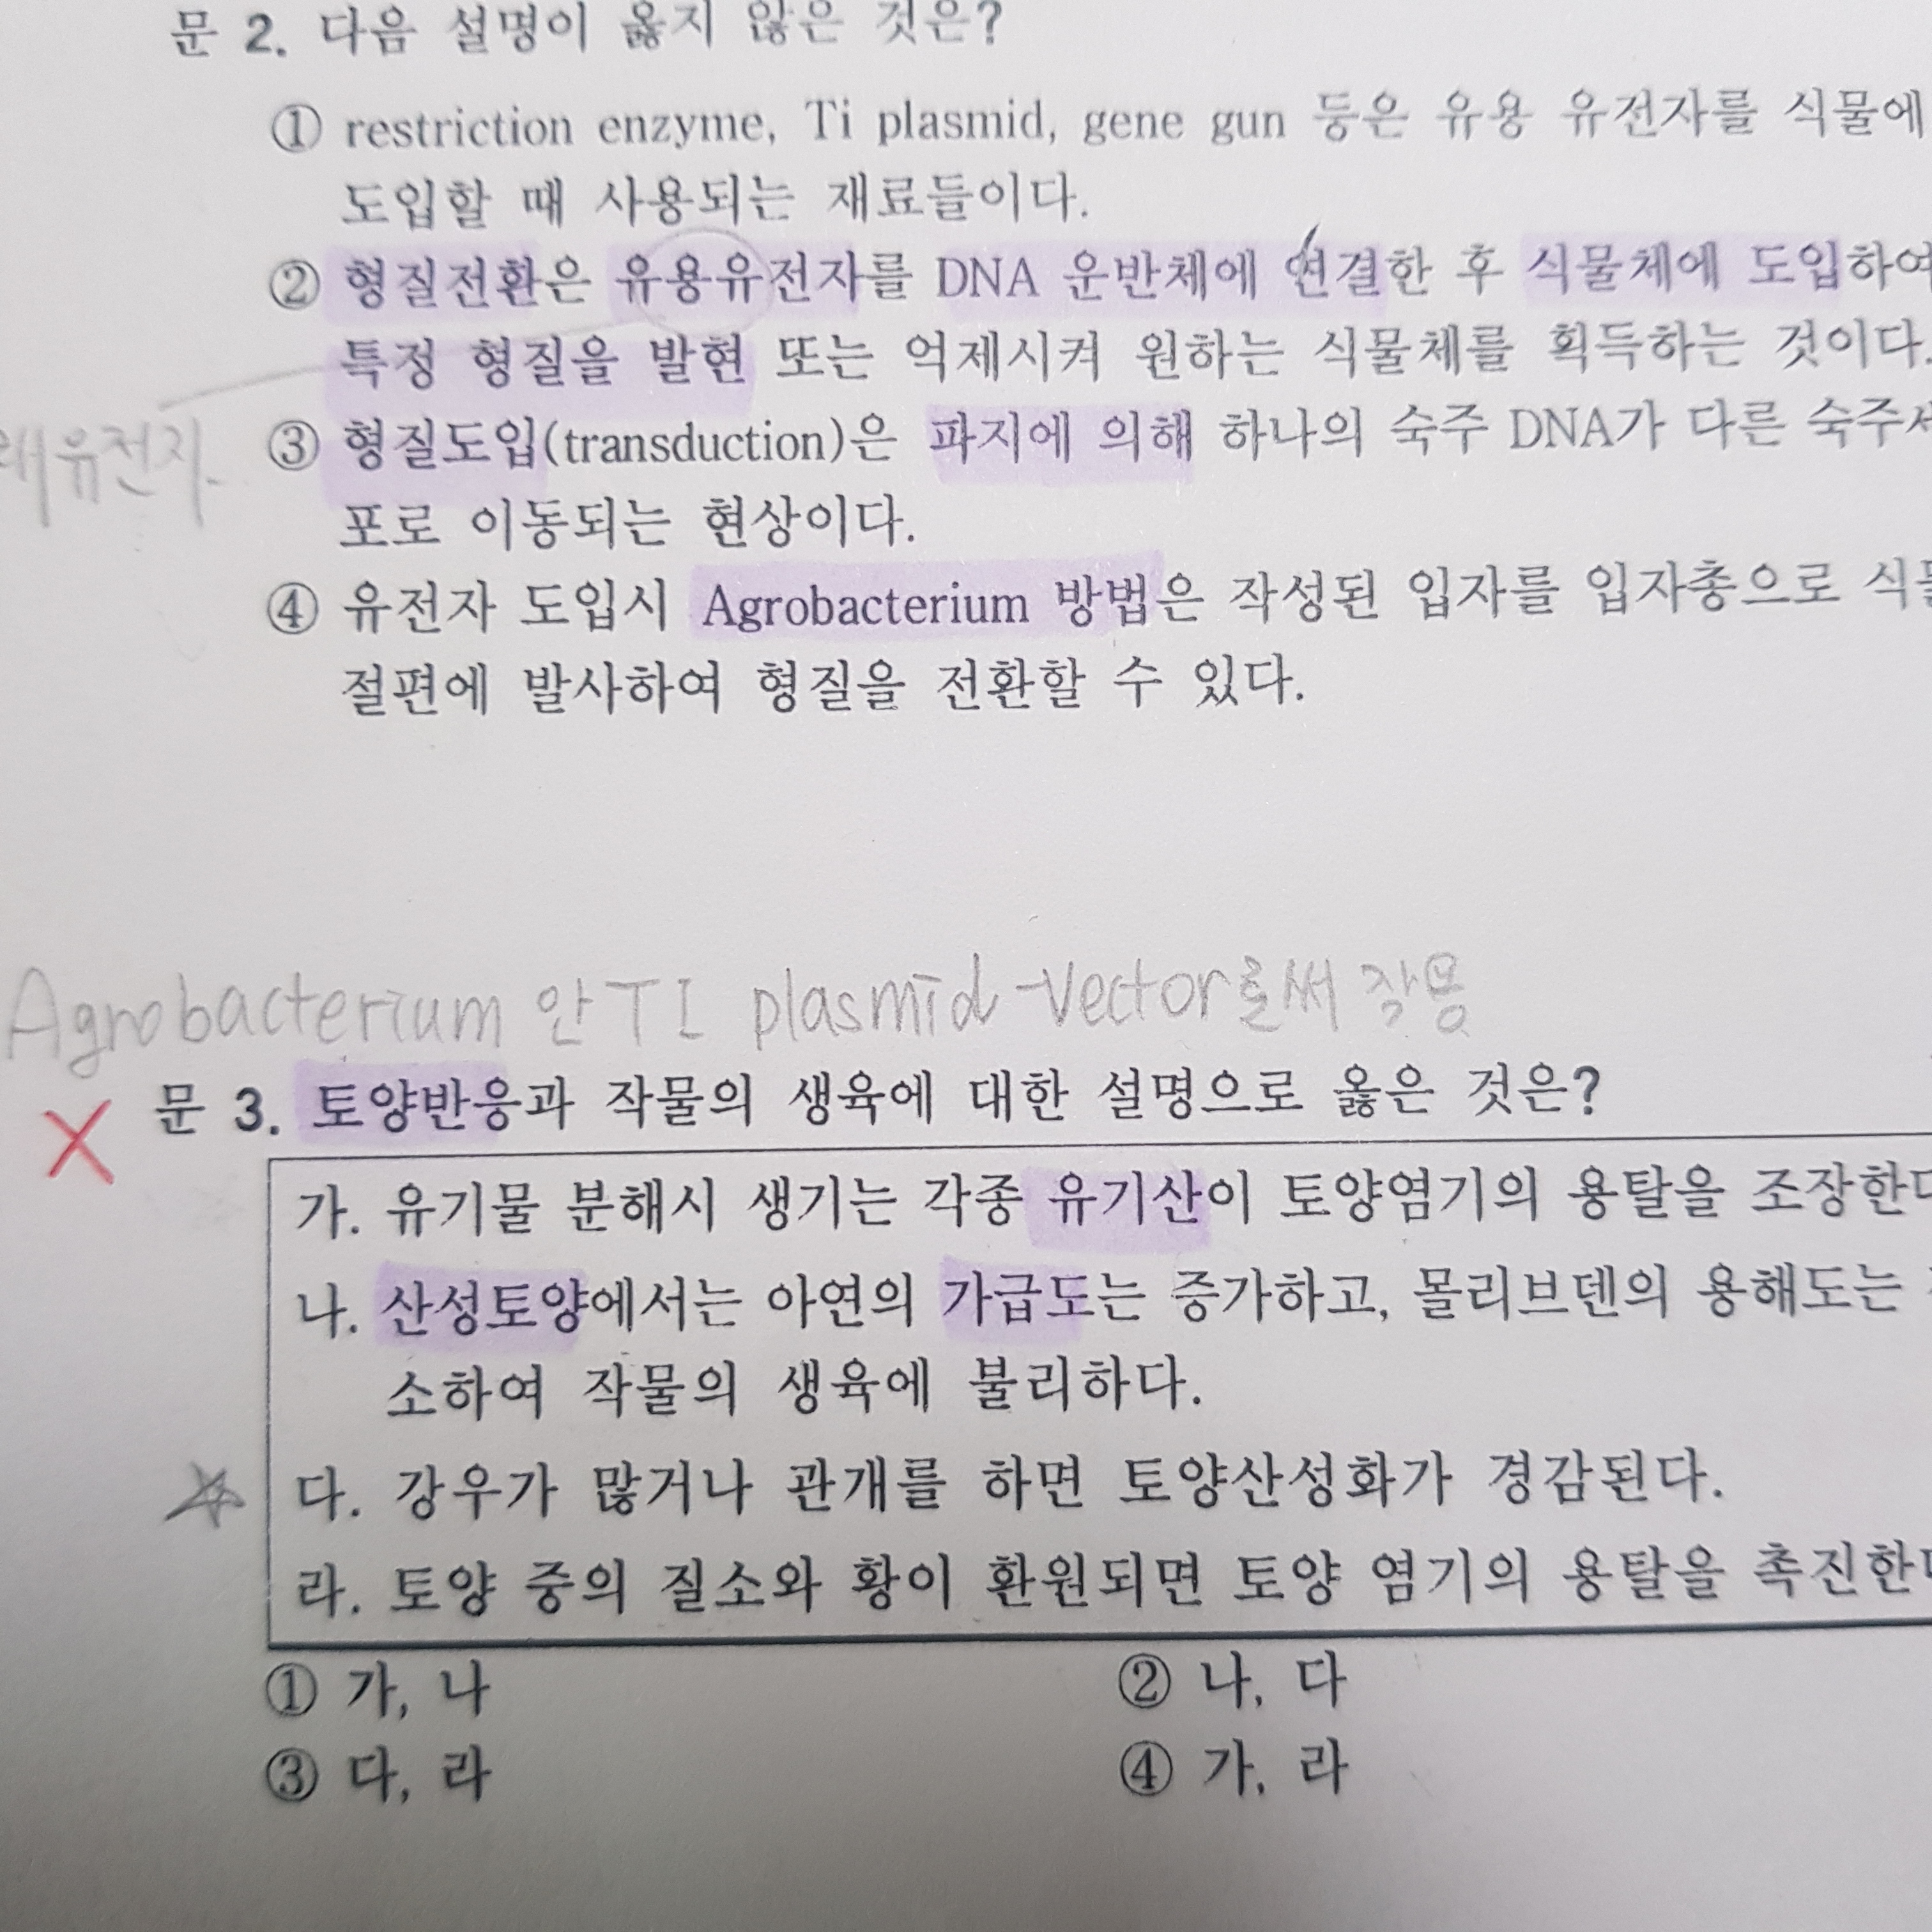 문 2. 다음 설명이 옳지 않은 것은?
① restriction enzyme, Ti plasmid, gene gun 등은 유용 유전자를 식물에
도입할 때 사용되는 재료들이다.
② 형질전환은 유용유전자를 DNA 운반체에 연결한 후 식물체에 도입하여
특정 형질을 발현 또는 억제시켜 원하는 식물체를 획득하는 것이다.
래유전자
③ 형질도입(transduction)은 파지에 의해 하나의 숙주 DNA가 다른 숙주세
포로 이동되는 현상이다.
④ 유전자 도입시 Agrobacterium 방법은 작성된 입자를 입자총으로 식물
절편에 발사하여 형질을 전환할 수 있다.
Agrobacterium 안 TI plasmid -Vector로써 작용
문 3. 토양반응과 작물의 생육에 대한 설명으로 옳은 것은?
가. 유기물 분해시 생기는 각종 유기산이 토양염기의 용탈을 조장한다
나. 산성토양에서는 아연의 가급도는 증가하고, 몰리브덴의 용해도는
소하여 작물의 생육에 불리하다.
다. 강우가 많거나 관개를 하면 토양산성화가 경감된다.
라. 토양 중의 질소와 황이 환원되면 토양 염기의 용탈을 촉진한다
① 가, 나 ② 나, 다
③ 다, 라 ④ 가, 라